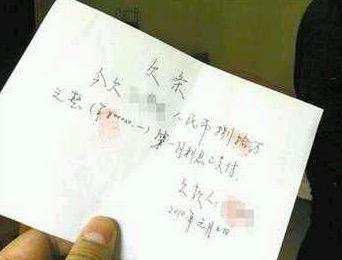 欠条
今欠 人民币捌拾万
元整（￥800000.—）第一月利息已支付
欠款人：
2010年元月2日